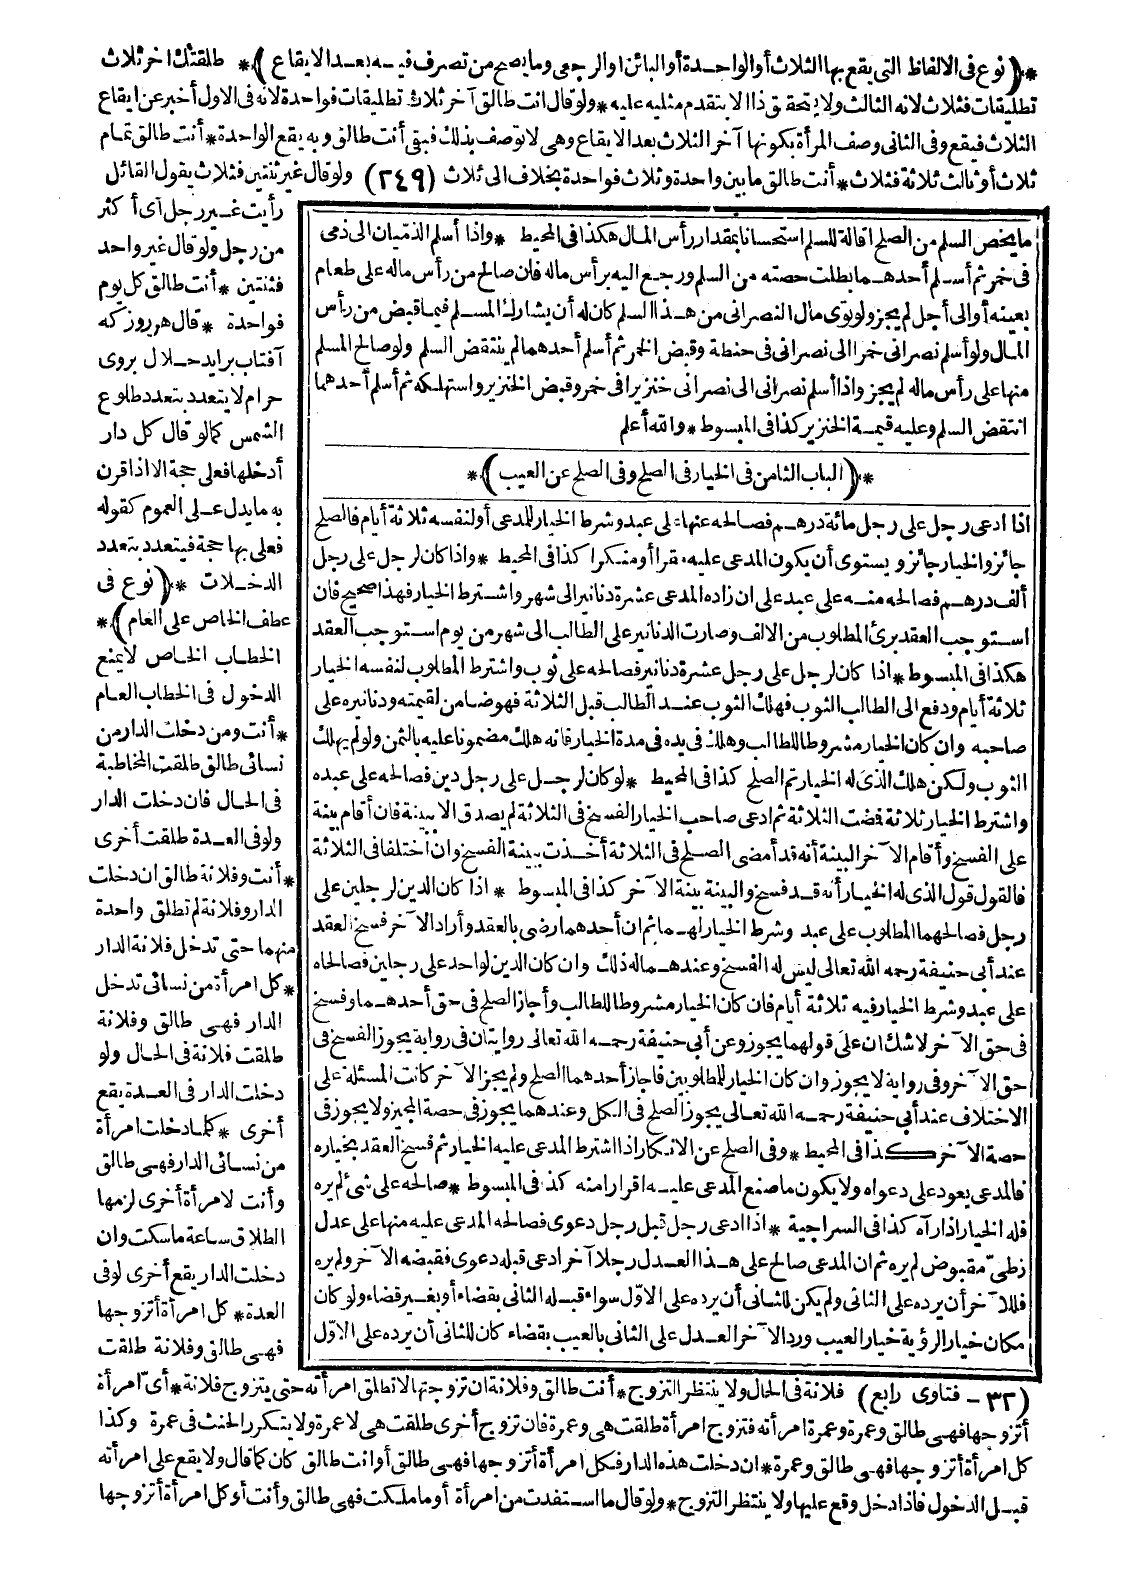 *﴿نوع فى الالفاظ التى يقع بها الثلاث أو الواحدة أو البائن او الرجعى وما يصح من تصرف فيه بعد الايقاع﴾* طلقتك اخر ثلاث
تطليقات فثلاث لانه الثالث ولا يتحقق ذا الا بتقدم مثليه عليه * ولو قال انت طالق آخر ثلاث تطليقات فواحدة لانه فى الاول أخبر عن ايقاع
الثلاث فيقع وفى الثانى وصف المرأة بكونها آخر الثلاث بعد الايقاع وهى لا توصف بذلك فبقى أنت طالق وبه يقع الواحدة * أنت طالق تمام
ثلاث أو ثالث ثلاثة فثلاث * أنت طالق ما بين واحدة وثلاث فواحدة بخلاف الى ثلاث (٢٤٩) ولو قال غير ثنتين فثلاث يقول القائل
رأيت غير رجل أى أكثر
من رجل ولو قال غير واحد
فثنتين * أنت طالق كل يوم
فواحدة * قال هر روز كه
آفتاب برايد حلال بروى
حرام لا يتعدد بتعدد طلوع
الشمس كما لو قال كل دار
أدخلها فعلى حجة الا اذا قرن
به ما يدل على العموم كقوله
فعلى بها حجة فيتعدد بتعدد
الدخلات *﴿نوع فى
عطف الخاص على العام﴾*
الخطاب الخاص لا يمنع
الدخول فى الخطاب العام
* أنت ومن دخلت الدار من
نسائى طالق طلقت المخاطبة
فى الحال فان دخلت الدار
ولو فى العدة طلقت أخرى
* أنت وفلانة طالق ان دخلت
الدار وفلانة لم تطلق واحدة
منهما حتى تدخل فلانة الدار
* كل امرأة من نسائى تدخل
الدار فهى طالق وفلانة
طلقت فلانة فى الحال ولو
دخلت الدار فى العدة يقع
أخرى * كلما دخلت امرأة
من نسائى الدار فهى طالق
وأنت لامرأة أخرى لزمها
الطلاق ساعة ما سكت وان
دخلت الدار يقع أخرى لو فى
العدة * كل امرأة أتزوجها
فهى طالق وفلانة طلقت
ما يخص السلم من الصلح اقالة للسلم استحسانا بمقدار رأس المال هكذا فى المحيط * واذا أسلم الذميان الى ذمى
فى خمر ثم أسلم أحدهما بطلت حصته من السلم ورجع اليه برأس ماله فان صالح من رأس ماله على طعام
بعينه أو الى أجل لم يجز ولو توى مال النصرانى من هذا السلم كان له أن يشارك المسلم فيما قبض من رأس
المال ولو أسلم نصرانى خمرا الى نصرانى فى حنطة وقبض الخمر ثم أسلم أحدهما لم ينتقض السلم ولو صالح المسلم
منها على رأس ماله لم يجز واذا أسلم نصرانى الى نصرانى خنزيرا فى خمر وقبض الخنزير واستهلكه ثم أسلم أحدهما
انتقض السلم وعليه قيمة الخنزير كذا فى المبسوط * والله أعلم
*﴿الباب الثامن فى الخيار فى الصلح وفى الصلح عن العيب﴾*
اذا ادعى رجل على رجل مائة درهم فصالحه عنها على عبد وشرط الخيار للمدعى أو لنفسه ثلاثة أيام فالصلح
جائز والخيار جائز ويستوى أن يكون المدعى عليه مقرا أو منكرا كذا فى المحيط * واذا كان لرجل على رجل
ألف درهم فصالحه منه على عبد على ان زاده المدعى عشرة دنانير الى شهر واشترط الخيار فهذا صحيح فان
استوجب العقد برئ المطلوب من الالف وصارت الدنانير على الطالب الى شهر من يوم استوجب العقد
هكذا فى المبسوط * اذا كان لرجل على رجل عشرة دنانير فصالحه على ثوب واشترط المطلوب لنفسه الخيار
ثلاثة أيام ودفع الى الطالب الثوب فهلك الثوب عند الطالب قبل الثلاثة فهو ضامن لقيمته ودنانيره على
صاحبه وان كان الخيار مشروطا للطالب وهلك فى يده فى مدة الخيار فانه هلك مضمونا عليه بالثمن ولو لم يهلك
الثوب ولكن هلك الذى له الخيار تم الصلح كذا فى المحيط * لو كان لرجل على رجل دين فصالحه على عبده
واشترط الخيار ثلاثة فمضت الثلاثة ثم ادعى صاحب الخيار الفسخ فى الثلاثة لم يصدق الا ببينة فان أقام بينة
على الفسخ وأقام الآخر البينة أنه قد أمضى الصلح فى الثلاثة أخذت ببينة الفسخ وان اختلفا فى الثلاثة
فالقول قول الذى له الخيار أنه قد فسخ والبينة بينة الآخر كذا فى المبسوط * اذا كان الدين لرجلين على
رجل فصالحهما المطلوب على عبد وشرط الخيار لهما ثم ان أحدهما رضى بالعقد وأراد الآخر فسخ العقد
عند أبى حنيفة رحمه الله تعالى ليس له الفسخ وعندهما له ذلك وان كان الدين لواحد على رجلين فصالحاه
على عبد وشرط الخيار فيه ثلاثة أيام فان كان الخيار مشروطا للطالب وأجاز الصلح فى حق أحدهما وفسخ
فى حق الآخر لا شك ان على قولهما يجوز وعن أبى حنيفة رحمه الله تعالى روايتان فى رواية يجوز الفسخ فى
حق الآخر وفى رواية لا يجوز وان كان الخيار للمطلوبين فاجاز أحدهما الصلح ولم يجز الآخر كانت المسئلة على
الاختلاف عند أبى حنيفة رحمه الله تعالى يجوز الصلح فى الكل وعندهما يجوز فى حصة المجيز ولا يجوز فى
حصة الآخر كذا فى المحيط * وفى الصلح عن الانكار اذا اشترط المدعى عليه الخيار ثم فسخ العقد بخياره
فالمدعى يعود على دعواه ولا يكون ما صنع المدعى عليه اقرارا منه كذا فى المبسوط * صالحه على شئ لم يره
فله الخيار اذا رآه كذا فى السراجية * اذا ادعى رجل قبل رجل دعوى فصالحه المدعى عليه منها على عدل
زطىّ مقبوض لم يره ثم ان المدعى صالح على هذا العدل رجلا آخر ادعى قبله دعوى فقبضه الآخر ولم يره
فللآخر أن يرده على الثانى ولم يكن للثانى أن يرده على الاوّل سواء قبله الثانى بقضاء أو بغير قضاء ولو كان
مكان خيار الرؤية خيار العيب ورد الآخر العدل على الثانى بالعيب بقضاء كان للثانى أن يرده على الاوّل
(٣٢ - فتاوى رابع) فلانة فى الحال ولا ينتظر التزوج * أنت طالق وفلانة ان تزوجتها لا تطلق امرأته حتى يتزوج فلانة * أىّ امرأة
أتزوجها فهى طالق وعمرة وعمرة امرأته فتزوج امرأة طلقت هى وعمرة فان تزوج أخرى طلقت هى لا عمرة ولا يتكرر الحنث فى عمرة وكذا
كل امرأة أتزوجها فهى طالق وعمرة * ان دخلت هذه الدار فكل امرأة أتزوجها فهى طالق أو انت طالق كان كما قال ولا يقع على امرأته
قبل الدخول فاذا دخل وقع عليها ولا ينتظر التزوج * ولو قال ما استفدت من امرأة أو ما ملكت فهى طالق وأنت أو كل امرأة أتزوجها